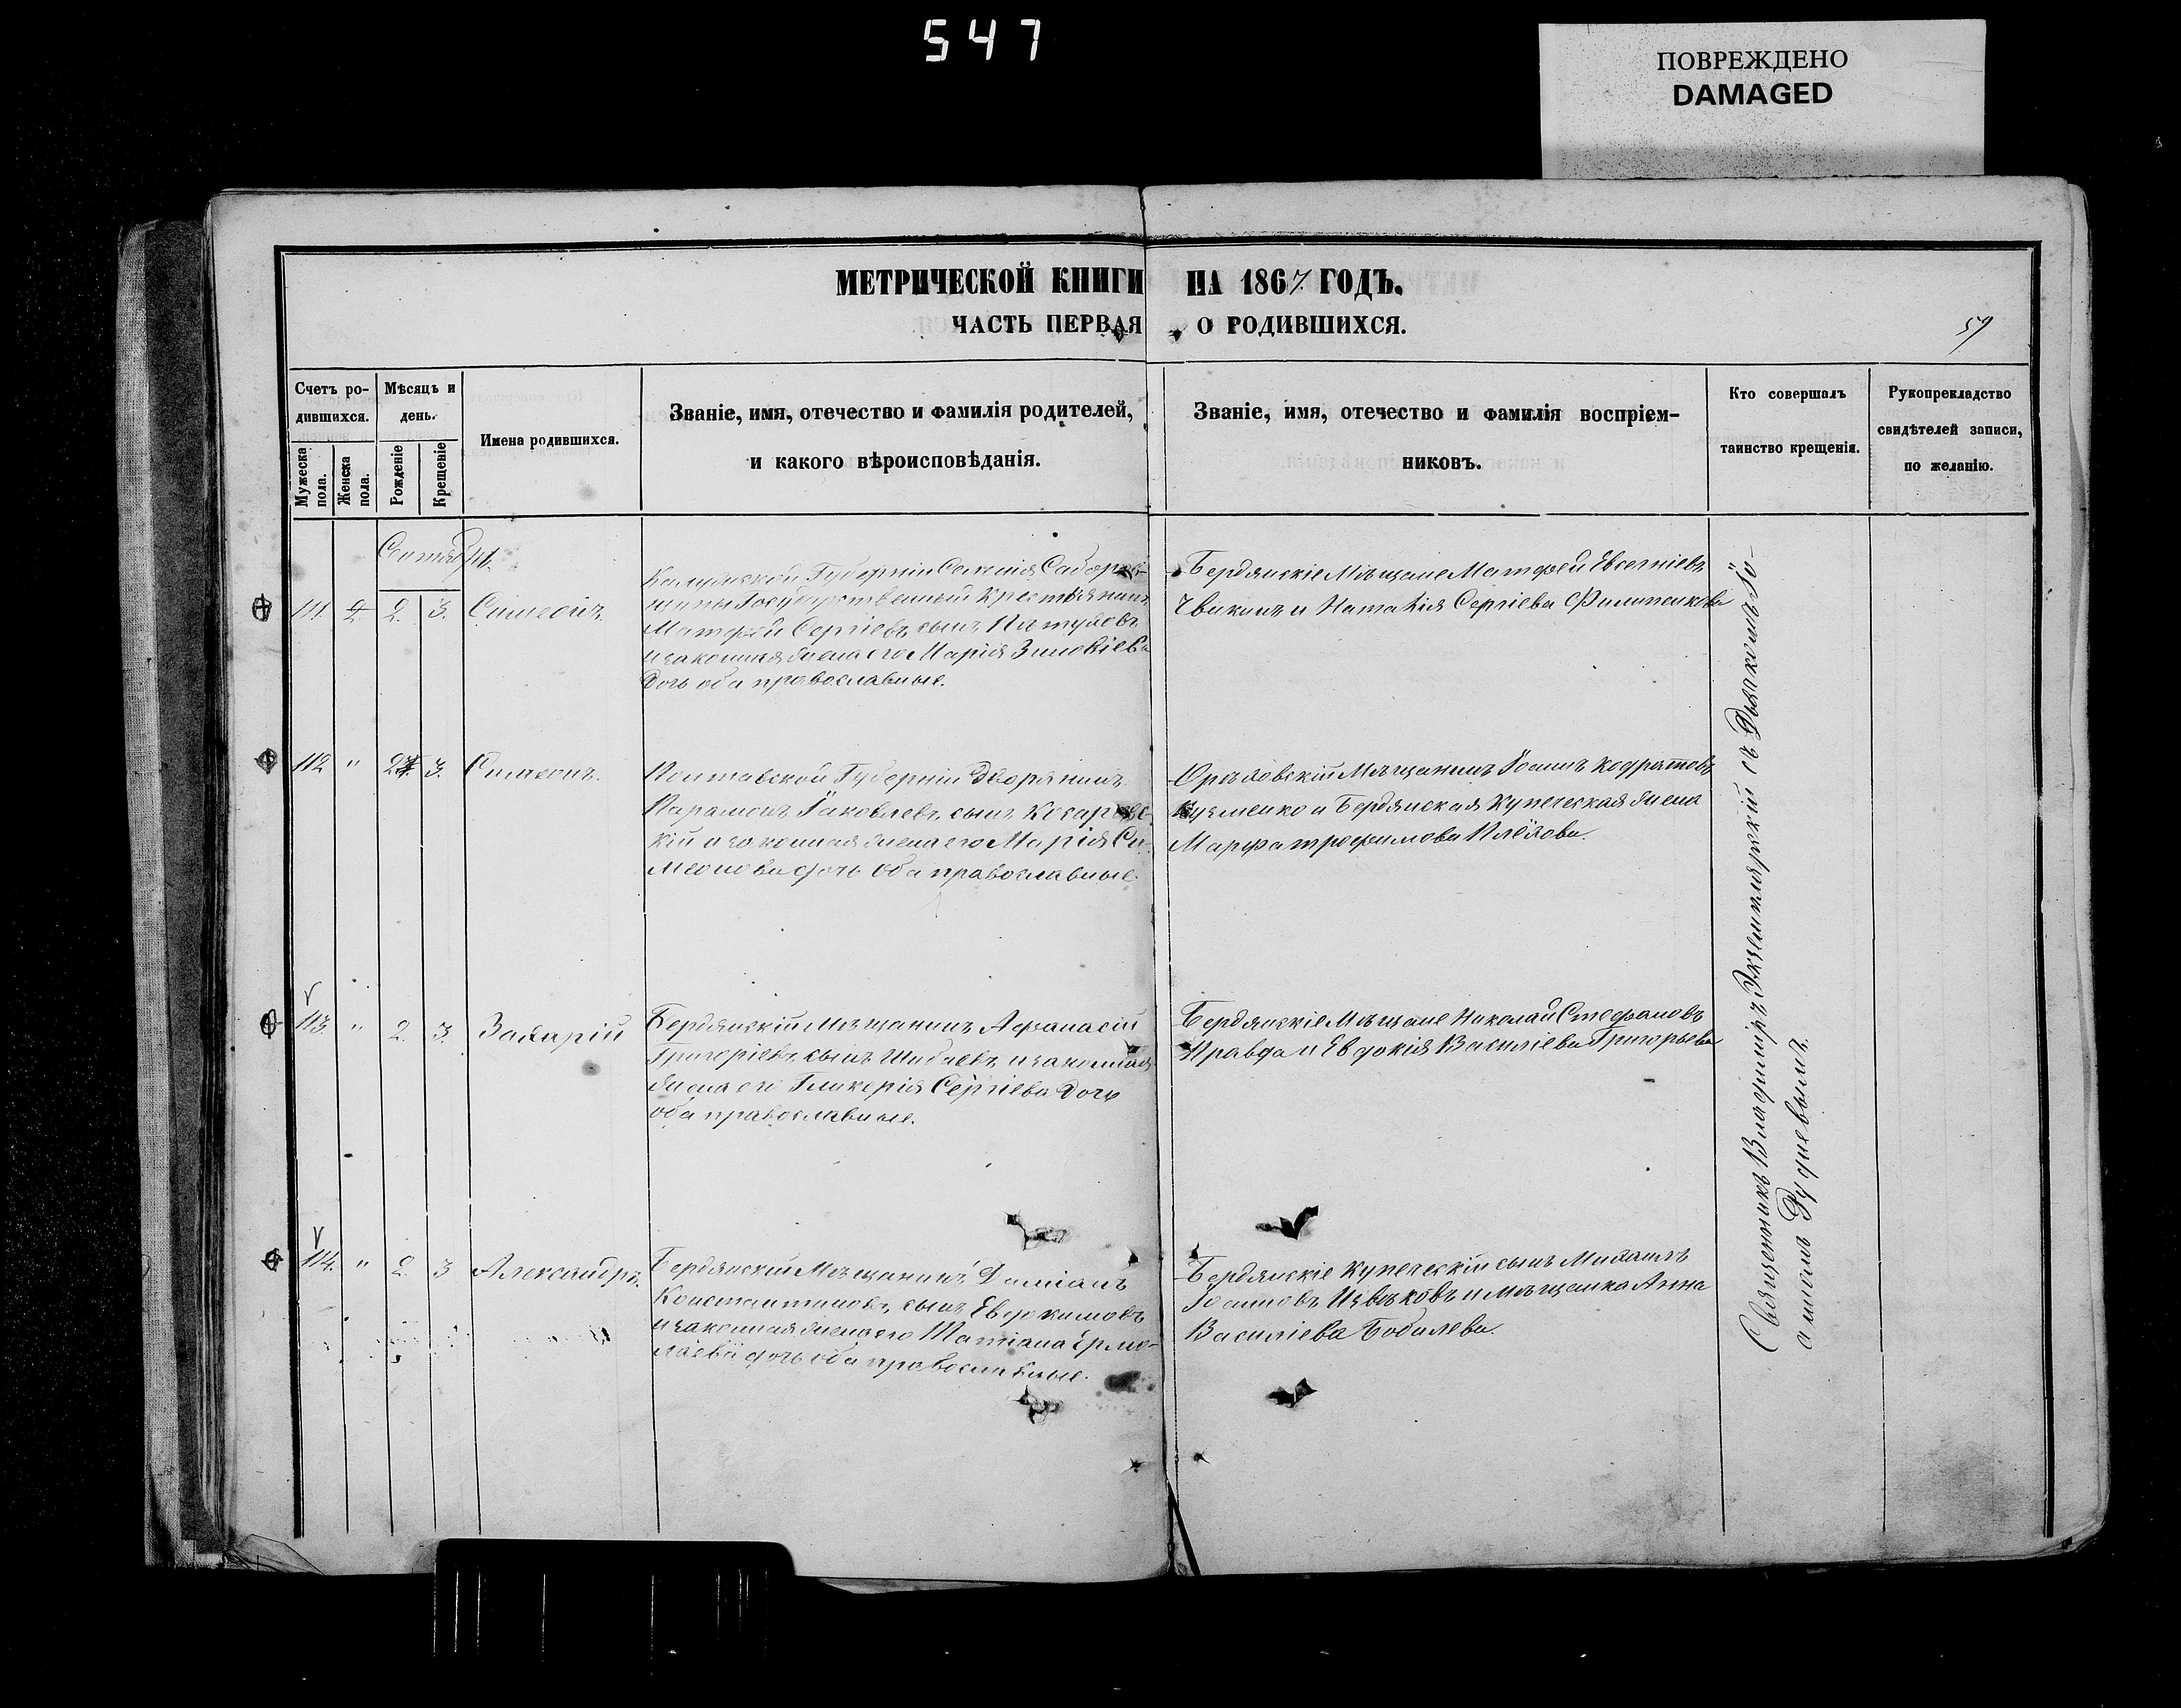 547
ПОВРЕЖДЕНО
DAMAGED
МЕТРИЧЕСКОЙ КНИГИ НА 1867. ГОДЪ.
ЧАСТЬ ПЕРВАЯ О РОДИВШИХСЯ.
59
Счетъ ро-
дившихся.
Мужеска пола.
Женска пола.
Мѣсяцъ и
день.
Рожденіе
Крещеніе
Имена родившихся.
Званіе, имя, отечество и фамилія родителей,
и какого вѣроисповѣданія.
Званіе, имя, отечество и фамилія воспріем-
никовъ.
Кто совершалъ
таинство крещенія.
Рукопрекладство
свидѣтелей записи,
по желанію.
Сентябрь.
111. 2. 3. Симеонъ.
Калужской Губерніи
Государственный Крестьянинъ
Матфей Сергіевъ сынъ
и законная жена его Марія Зиновіева
дочь оба православные.
Бердянскіе Мѣщане Матфей Евсегніевъ
и Наталія Сергіева Филипенкова
112 " 2. 3. Симеонъ.
Полтавской Губерніи Дворянинъ
Парамонъ Іаковлевъ сынъ Косаревс-
кій и законная жена его Марія Си-
меонова дочь оба православные.
Орѣховскій Мѣщанинъ Іоаннъ Кодратовъ
Кузменко и Бердянская Купеческая жена
Марфа Трофимова
113 " 2. 3. Захарій
Бердянскій Мѣщанинъ Афанасій
Григоріевъ сынъ Шибаевъ и законная
жена его Гликерія Сергіева дочь
оба православные.
Бердянскіе Мѣщане Николай Стефановъ
Правда и Евдокія Василіева Григорьева
114. " 2. 3 Александръ.
Бердянскій Мѣщанинъ Даміанъ
Константиновъ сынъ Евдокимовъ
и законная жена его Татіана Ермо-
лаева дочь оба православные.
Бердянскіе Купеческій сынъ Михаилъ
Іоанновъ Извѣковъ и мѣщанка Анна
Василіева Бобилева.
Священникъ Владиміръ Экземплярскій съ Дьякономъ Іо-
анномъ Рудневымъ.